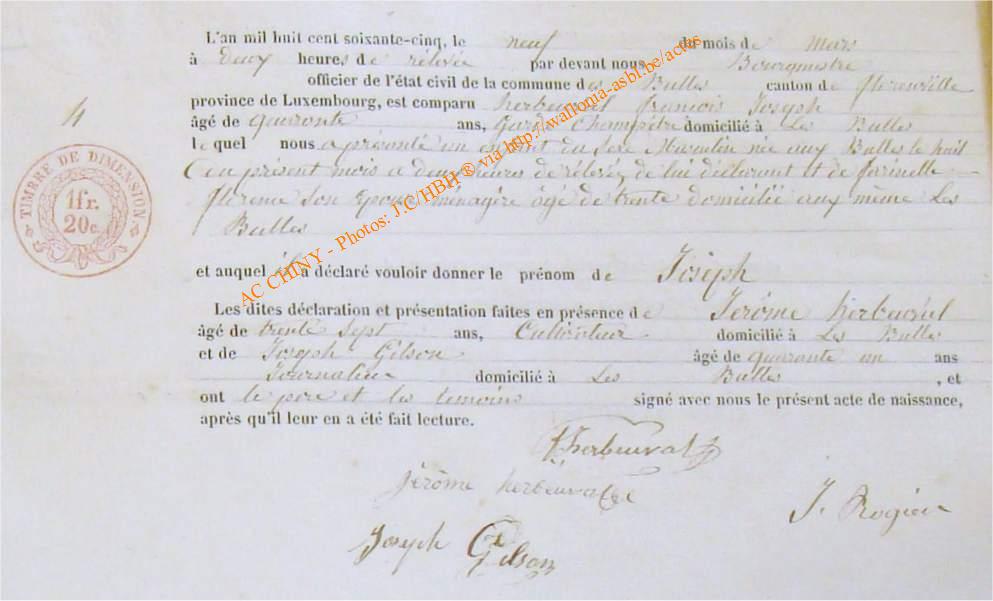 L'an mil huit cent soixante-cinq, le neuf du mois de Mars
à Deux heures de rélevée par devant nous Bourgmestre
officier de l'état civil de la commune des Bulles canton de florenville
province de Luxembourg, est comparu herbeuval françois Joseph
âgé de quaronte ans, Garde Champêtre domicilié à Les Bulles
lequel nous a présenté un enfant du sexe Masculin née aux Bulles le huit
du présent mois a deux heures de rélevée, de lui déclarant et de farinelle
florence Son épouse ménagère âgé de trente domicilié aux même Les
Bulles
et auquel il a déclaré vouloir donner le prénom de Joseph
Les dites déclaration et présentation faites en présence de Jérôme herbeuval
âgé de trente Sept ans, Cultivateur domicilié à Les Bulles
et de Joseph Gilson âgé de quaronte un ans
Journalier domicilié à Les Bulles , et
ont le pere et les temoins signé avec nous le présent acte de naissance,
après qu'il leur en a été fait lecture.
fherbeuval
Jérôme herbeuval
J. Rogier
Joseph Gilson
4
TIMBRE DE DIMENSION.
1fr.
20c.
AC CHINY - Photos: J.C/HBH ® via http://wallonia-asbl.be/actes